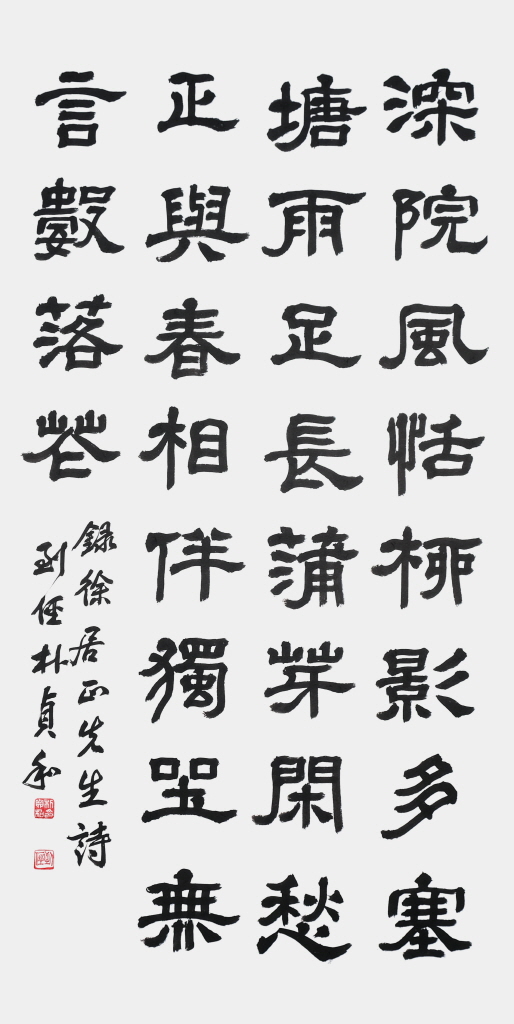 深院風恬柳影多塞
塘雨足長蒲芽閑愁
正與春相伴獨坐無
言數落花
錄徐居正先生詩
朴貞和